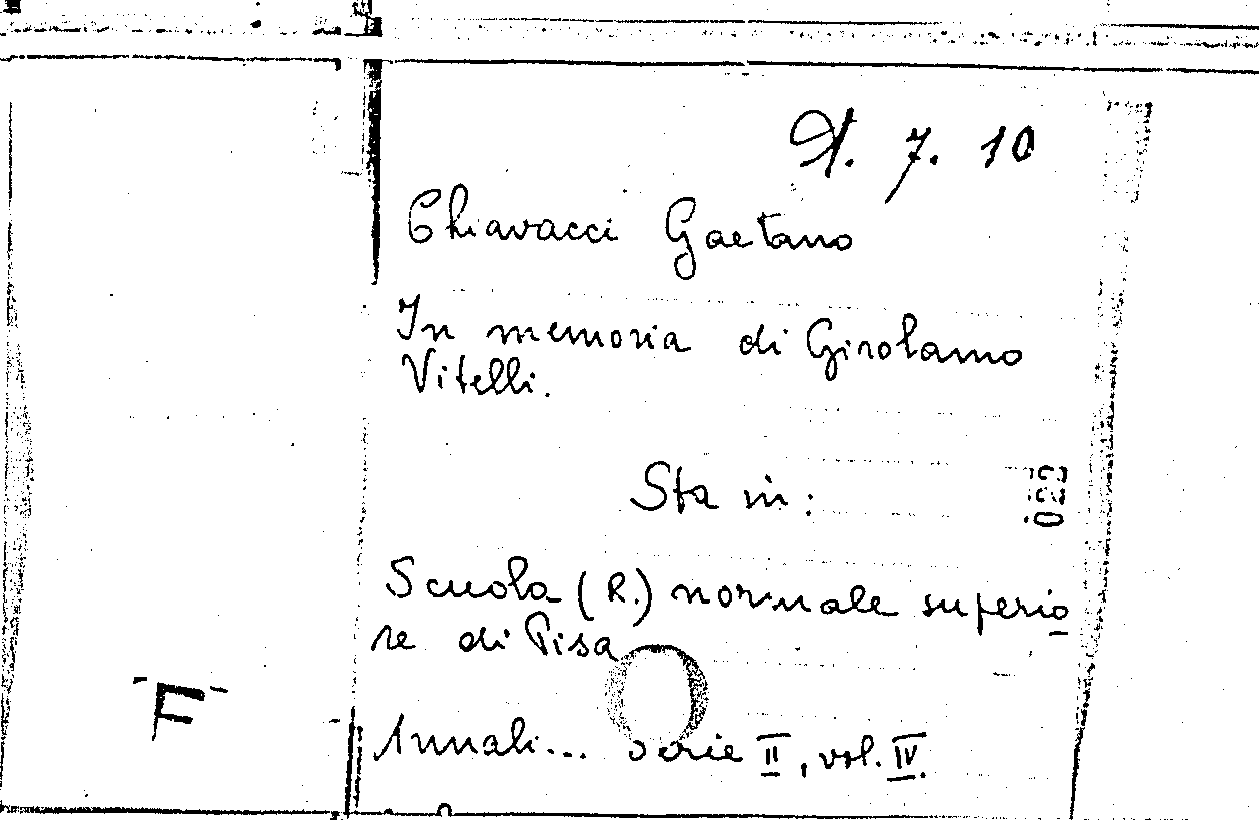 A. 7. 10
Chiavacci Gaetano
In memoria di Girolamo
Vitelli.
Sta in:
Scuola (R.) normale superio
re di Pisa
F
Annali... Serie II, vol. IV.